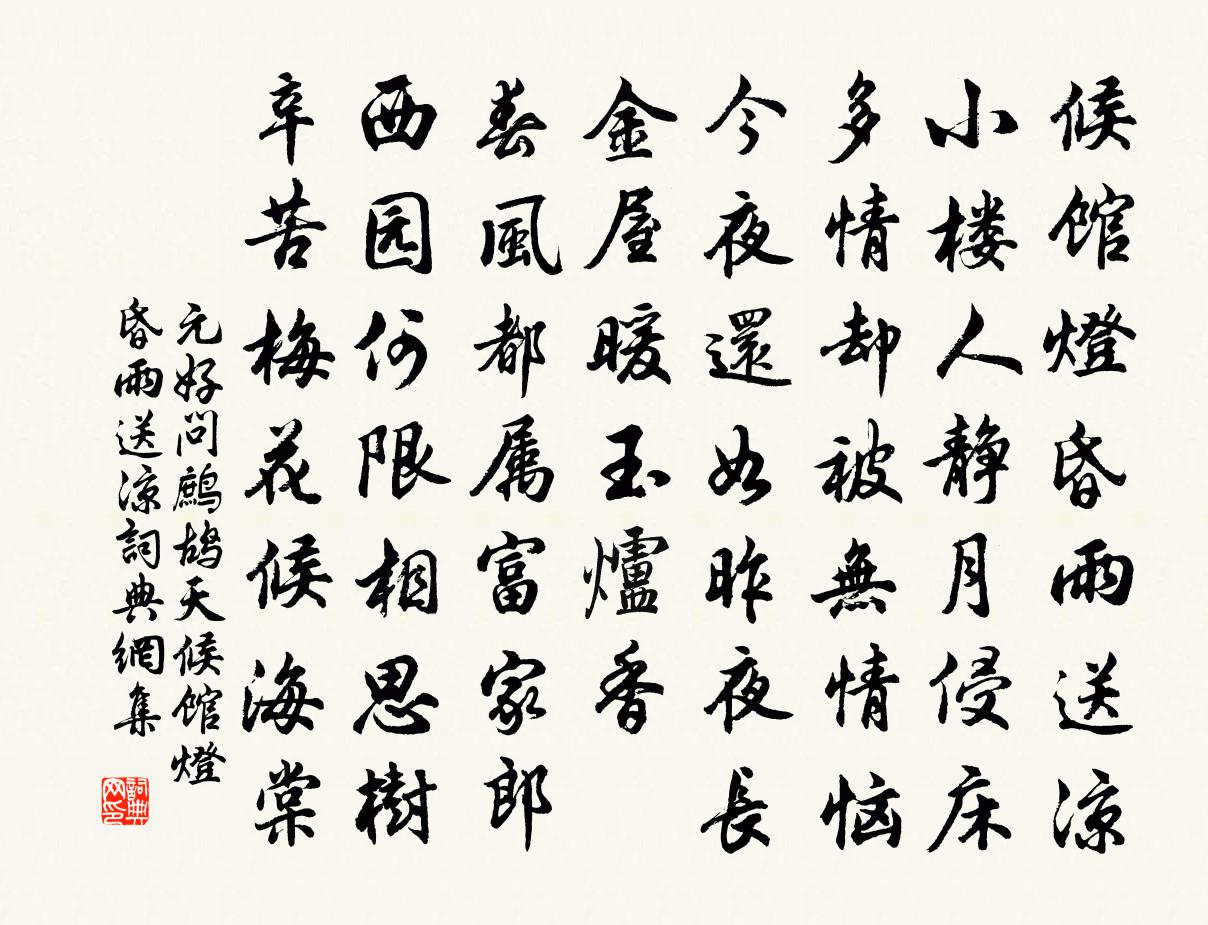 候馆燈昏雨送凉
小楼人静月侵床
多情却被無情恼
今夜還如昨夜長
金屋暖玉爐香
春風都属富家郎
西园何限相思樹
辛苦梅花候海棠
元好問鷓鴣天候馆燈
昏雨送凉詞典網集
詞典
网印